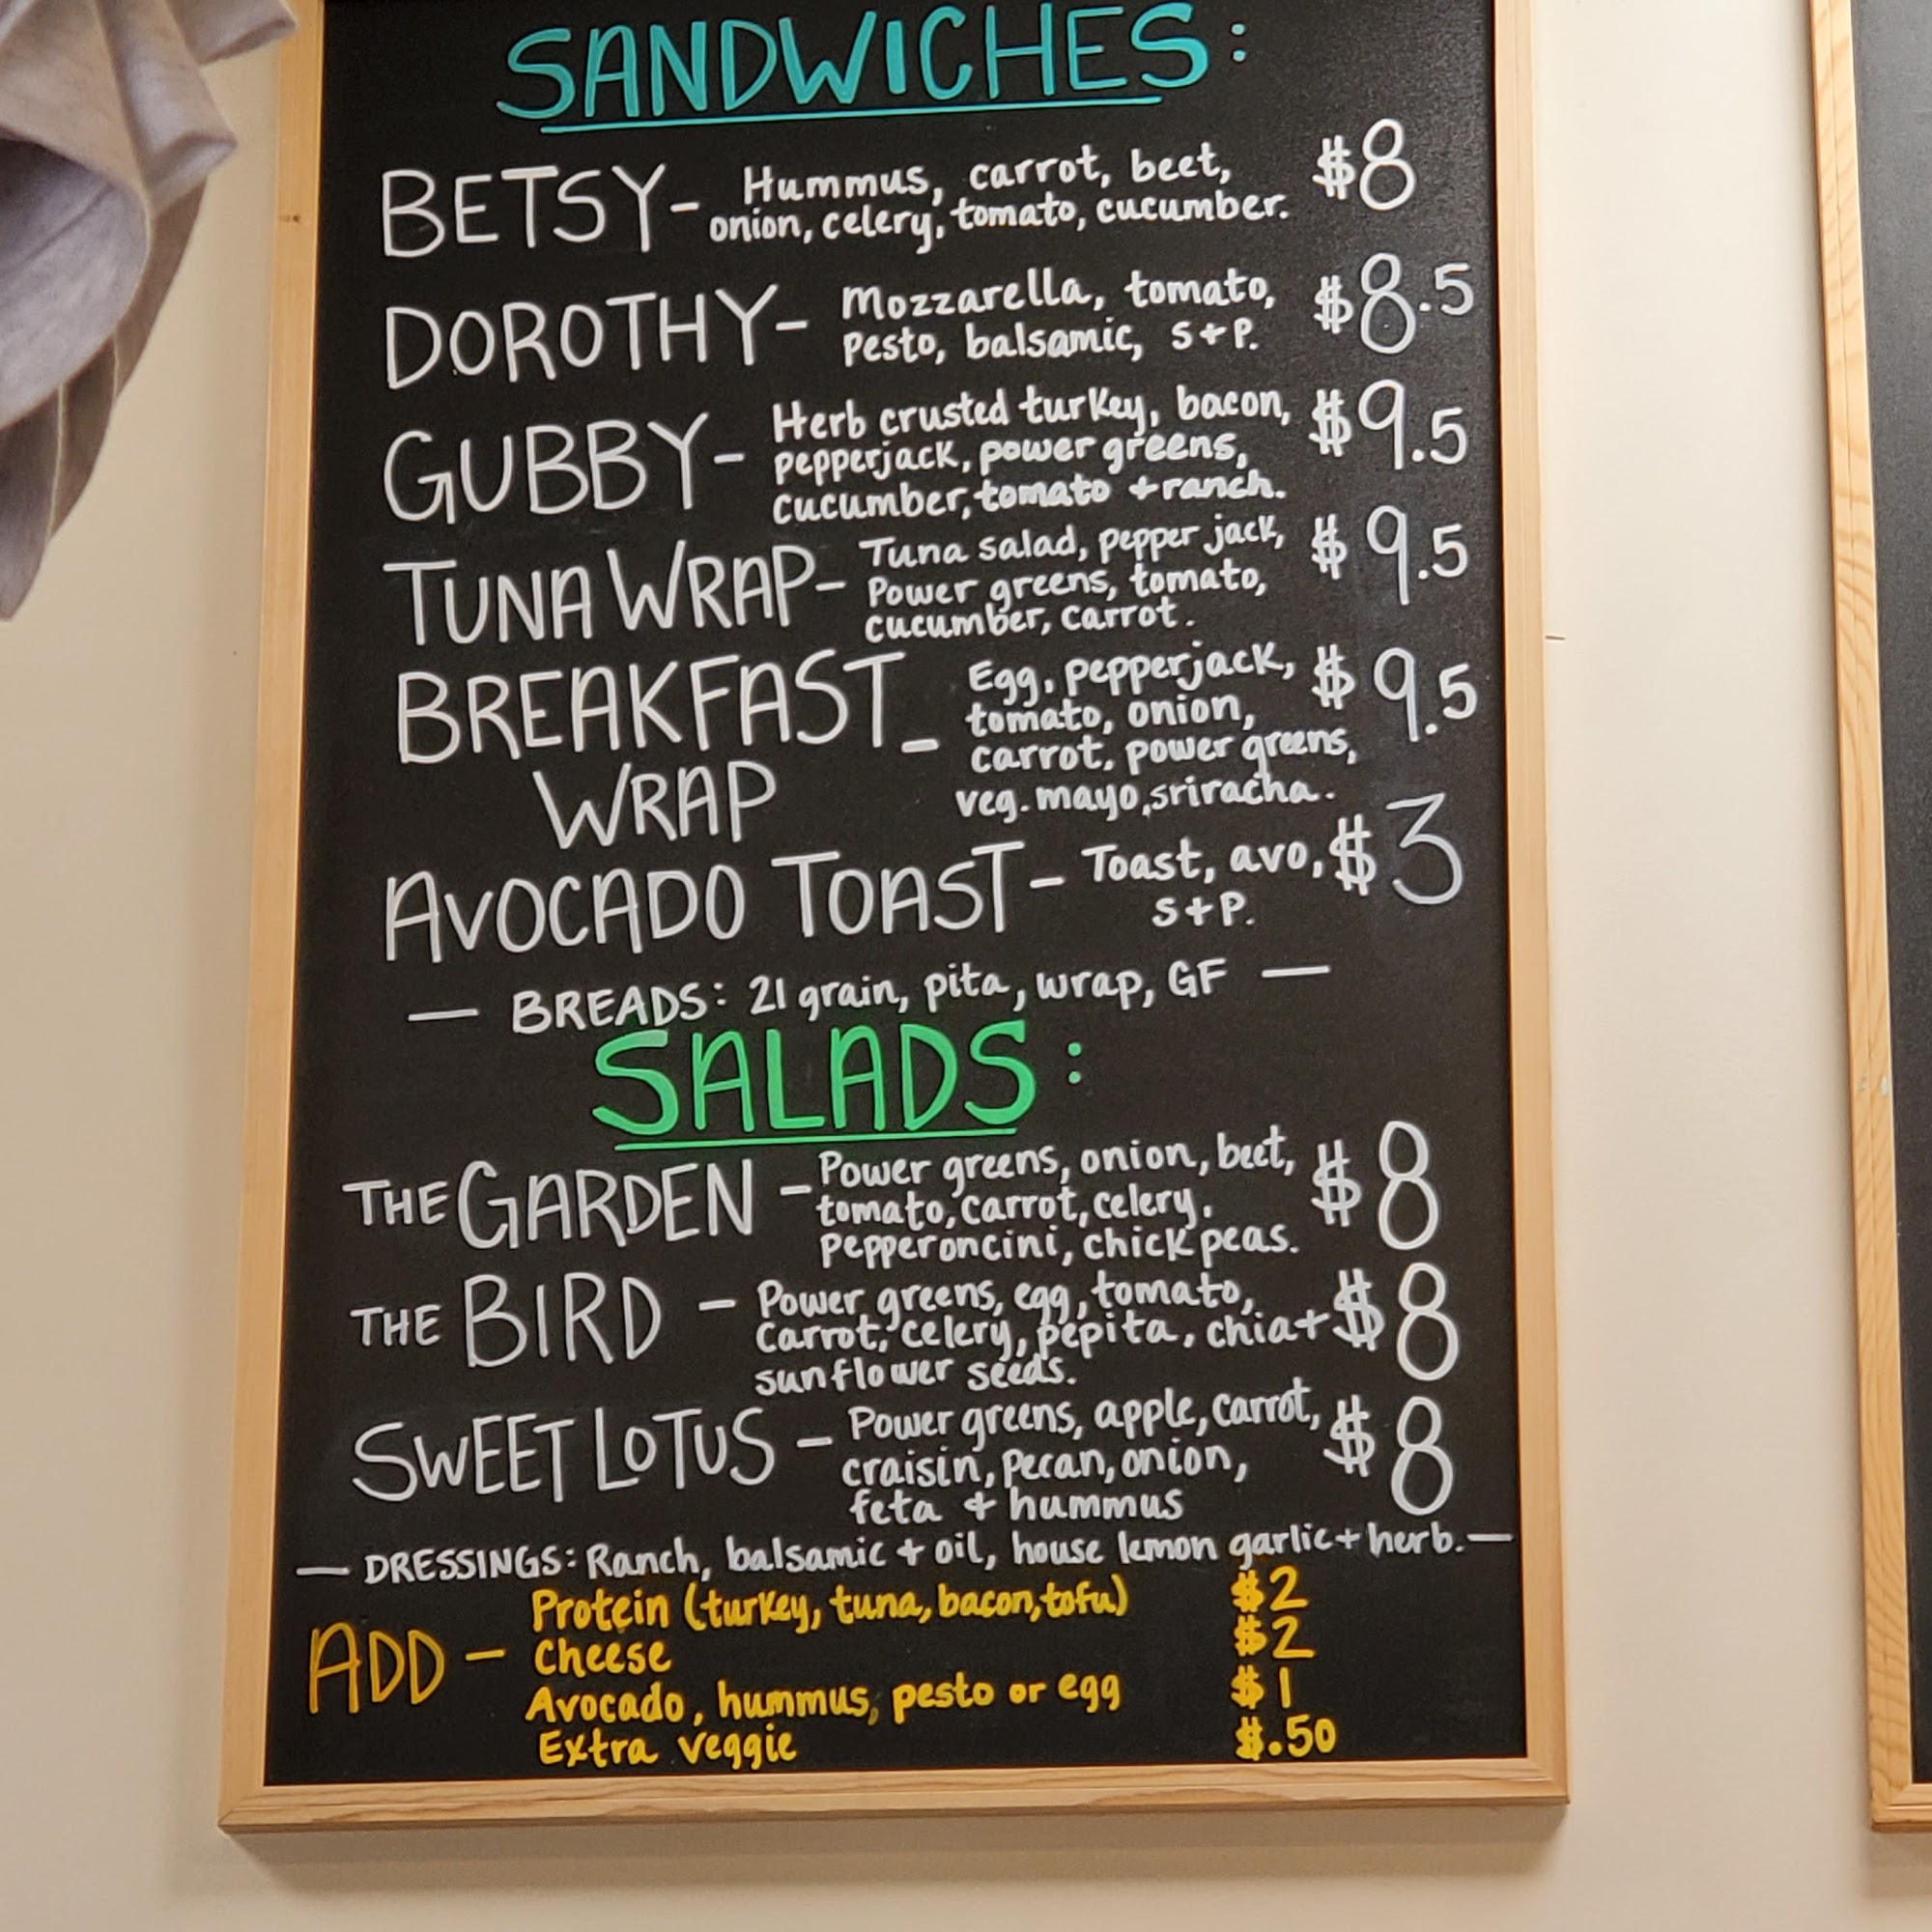 SANDWICHES:
BETSY- Hummus, carrot, beet, $8
onion, celery, tomato, cucumber.
DOROTHY- Mozzarella, tomato, $8.5
Pesto, balsamic, S+P.
GUBBY- Herb crusted turkey, bacon, $9.5
pepperjack, power greens,
cucumber, tomato + ranch.
TUNA WRAP- Tuna salad, pepper jack, $9.5
Power greens, tomato,
cucumber, carrot.
BREAKFAST - Egg, pepperjack, $9.5
tomato, onion,
carrot, power greens,
WRAP veg. mayo, sriracha.
AVOCADO TOAST- Toast, avo, $3
S+P.
— BREADS: 21 grain, pita, wrap, GF —
SALADS:
THE GARDEN - Power greens, onion, beet, $8
tomato, carrot, celery.
Pepperoncini, chick peas.
THE BIRD - Power greens, egg, tomato, $8
Carrot, celery, pepita, chia+
sunflower seeds.
SWEET LOTUS - Power greens, apple, carrot, $8
craisin, pecan, onion,
feta + hummus
— DRESSINGS: Ranch, balsamic + oil, house lemon garlic + herb. —
ADD - Protein (turkey, tuna, bacon, tofu) $2
Cheese $2
Avocado, hummus, pesto or egg $1
Extra veggie $.50